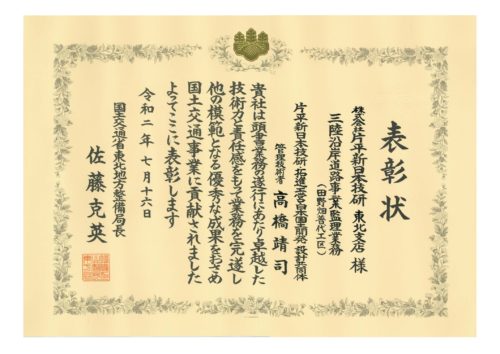 表彰状
株式会社片平新日本技研 東北支店 様
三陸沿岸道路事業監理業務
(田野畑普代工区)
片平新日本技研・拓進・宮泉・東国開発 設計共同体
管理技術者 高橋靖司
貴社は頭書業務の遂行にあたり卓越した
技術力と責任感をもって業務を完遂し
他の模範となる優秀な成果をおさめ
国土交通事業に貢献されました
よってここに表彰します
令和二年七月十六日
国土交通省東北地方整備局長
佐藤克英